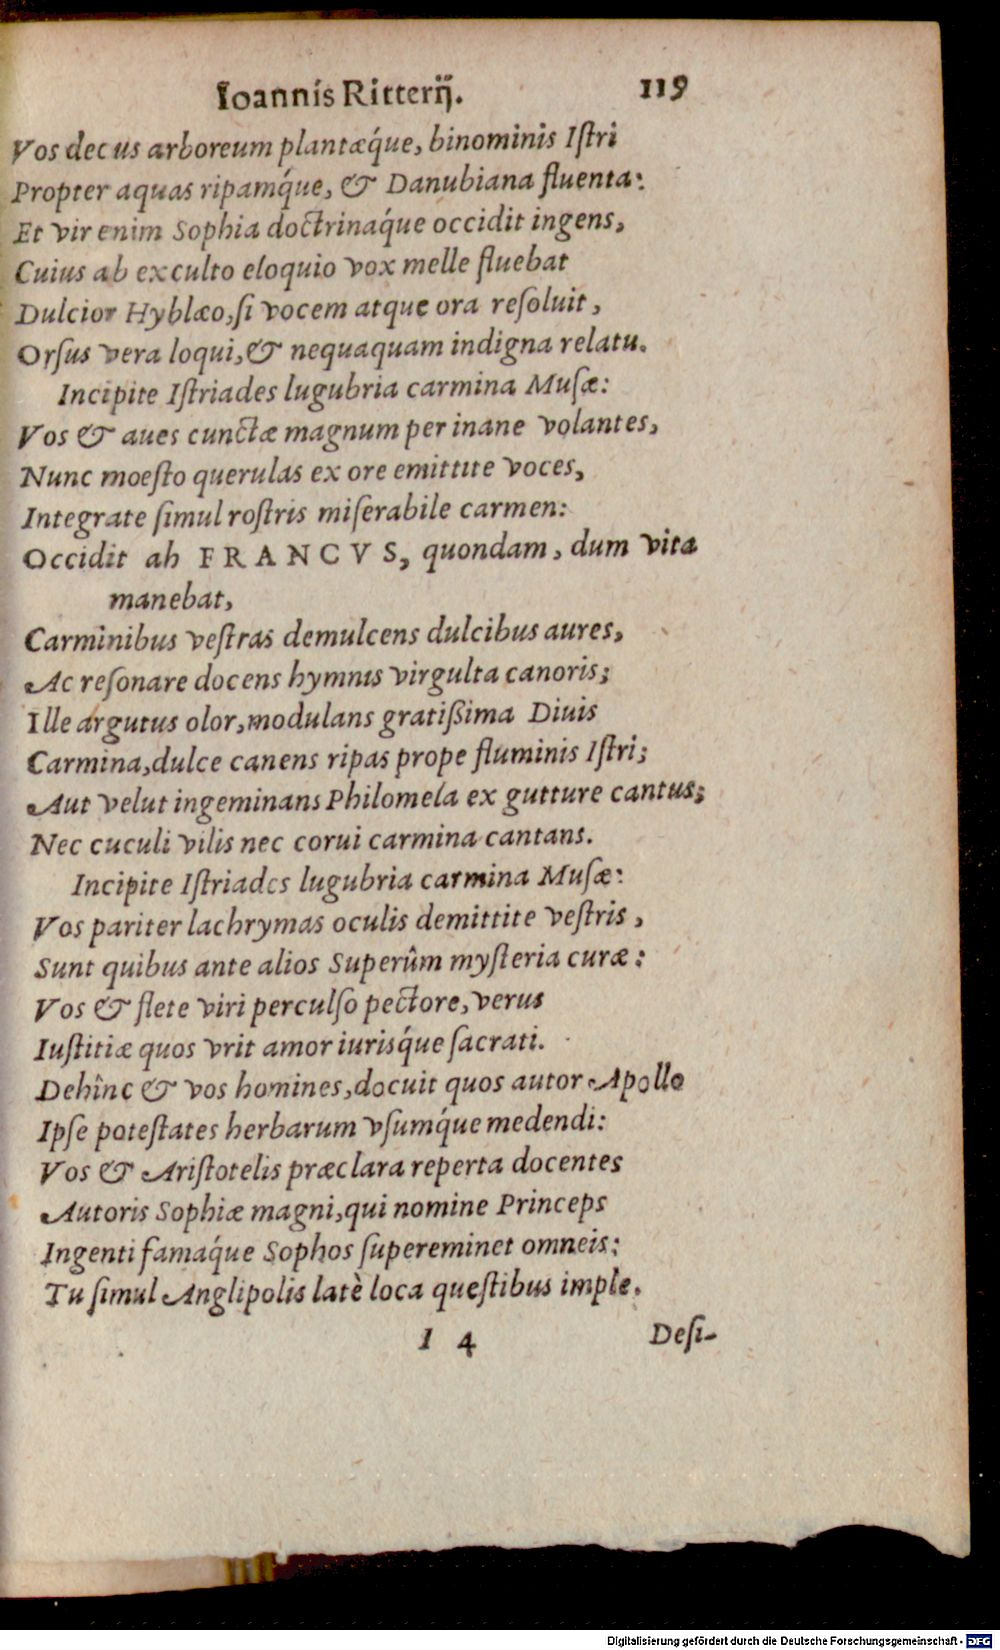 Ioannis Ritterij. 119
Vos decus arboreum plantæq́ue, binominis Iſtri
Propter aquas ripamq́ue, & Danubiana fluenta:
Et vir enim Sophia doctrinaq́ue occidit ingens,
Cuius ab exculto eloquio vox melle fluebat
Dulcior Hyblæo, ſi vocem atque ora reſoluit,
Orſus vera loqui, & nequaquam indigna relatu.
Incipite Iſtriades lugubria carmina Muſæ:
Vos & aues cunctæ magnum per inane volantes,
Nunc moeſto querulas ex ore emittite voces,
Integrate ſimul roſtris miſerabile carmen:
Occidit ah FRANCVS, quondam, dum vita
manebat,
Carminibus veſtras demulcens dulcibus aures,
Ac reſonare docens hymnis virgulta canoris;
Ille argutus olor, modulans gratißima Diuis
Carmina, dulce canens ripas prope fluminis Iſtri;
Aut velut ingeminans Philomela ex gutture cantus;
Nec cuculi vilis nec corui carmina cantans.
Incipite Iſtriades lugubria carmina Muſæ:
Vos pariter lachrymas oculis demittite veſtris,
Sunt quibus ante alios Superûm myſteria curæ:
Vos & flete viri perculſo pectore, verus
Iuſtitiæ quos vrit amor iurisq́ue ſacrati.
Dehînc & vos homines, docuit quos autor Apollo
Ipſe poteſtates herbarum vſumq́ue medendi:
Vos & Ariſtotelis præclara reperta docentes
Autoris Sophiæ magni, qui nomine Princeps
Ingenti famaq́ue Sophos ſupereminet omneis:
Tu ſimul Anglipolis latè loca queſtibus imple.
I 4 Deſi-
Digitalisierung gefördert durch die Deutsche Forschungsgemeinschaft - DFG